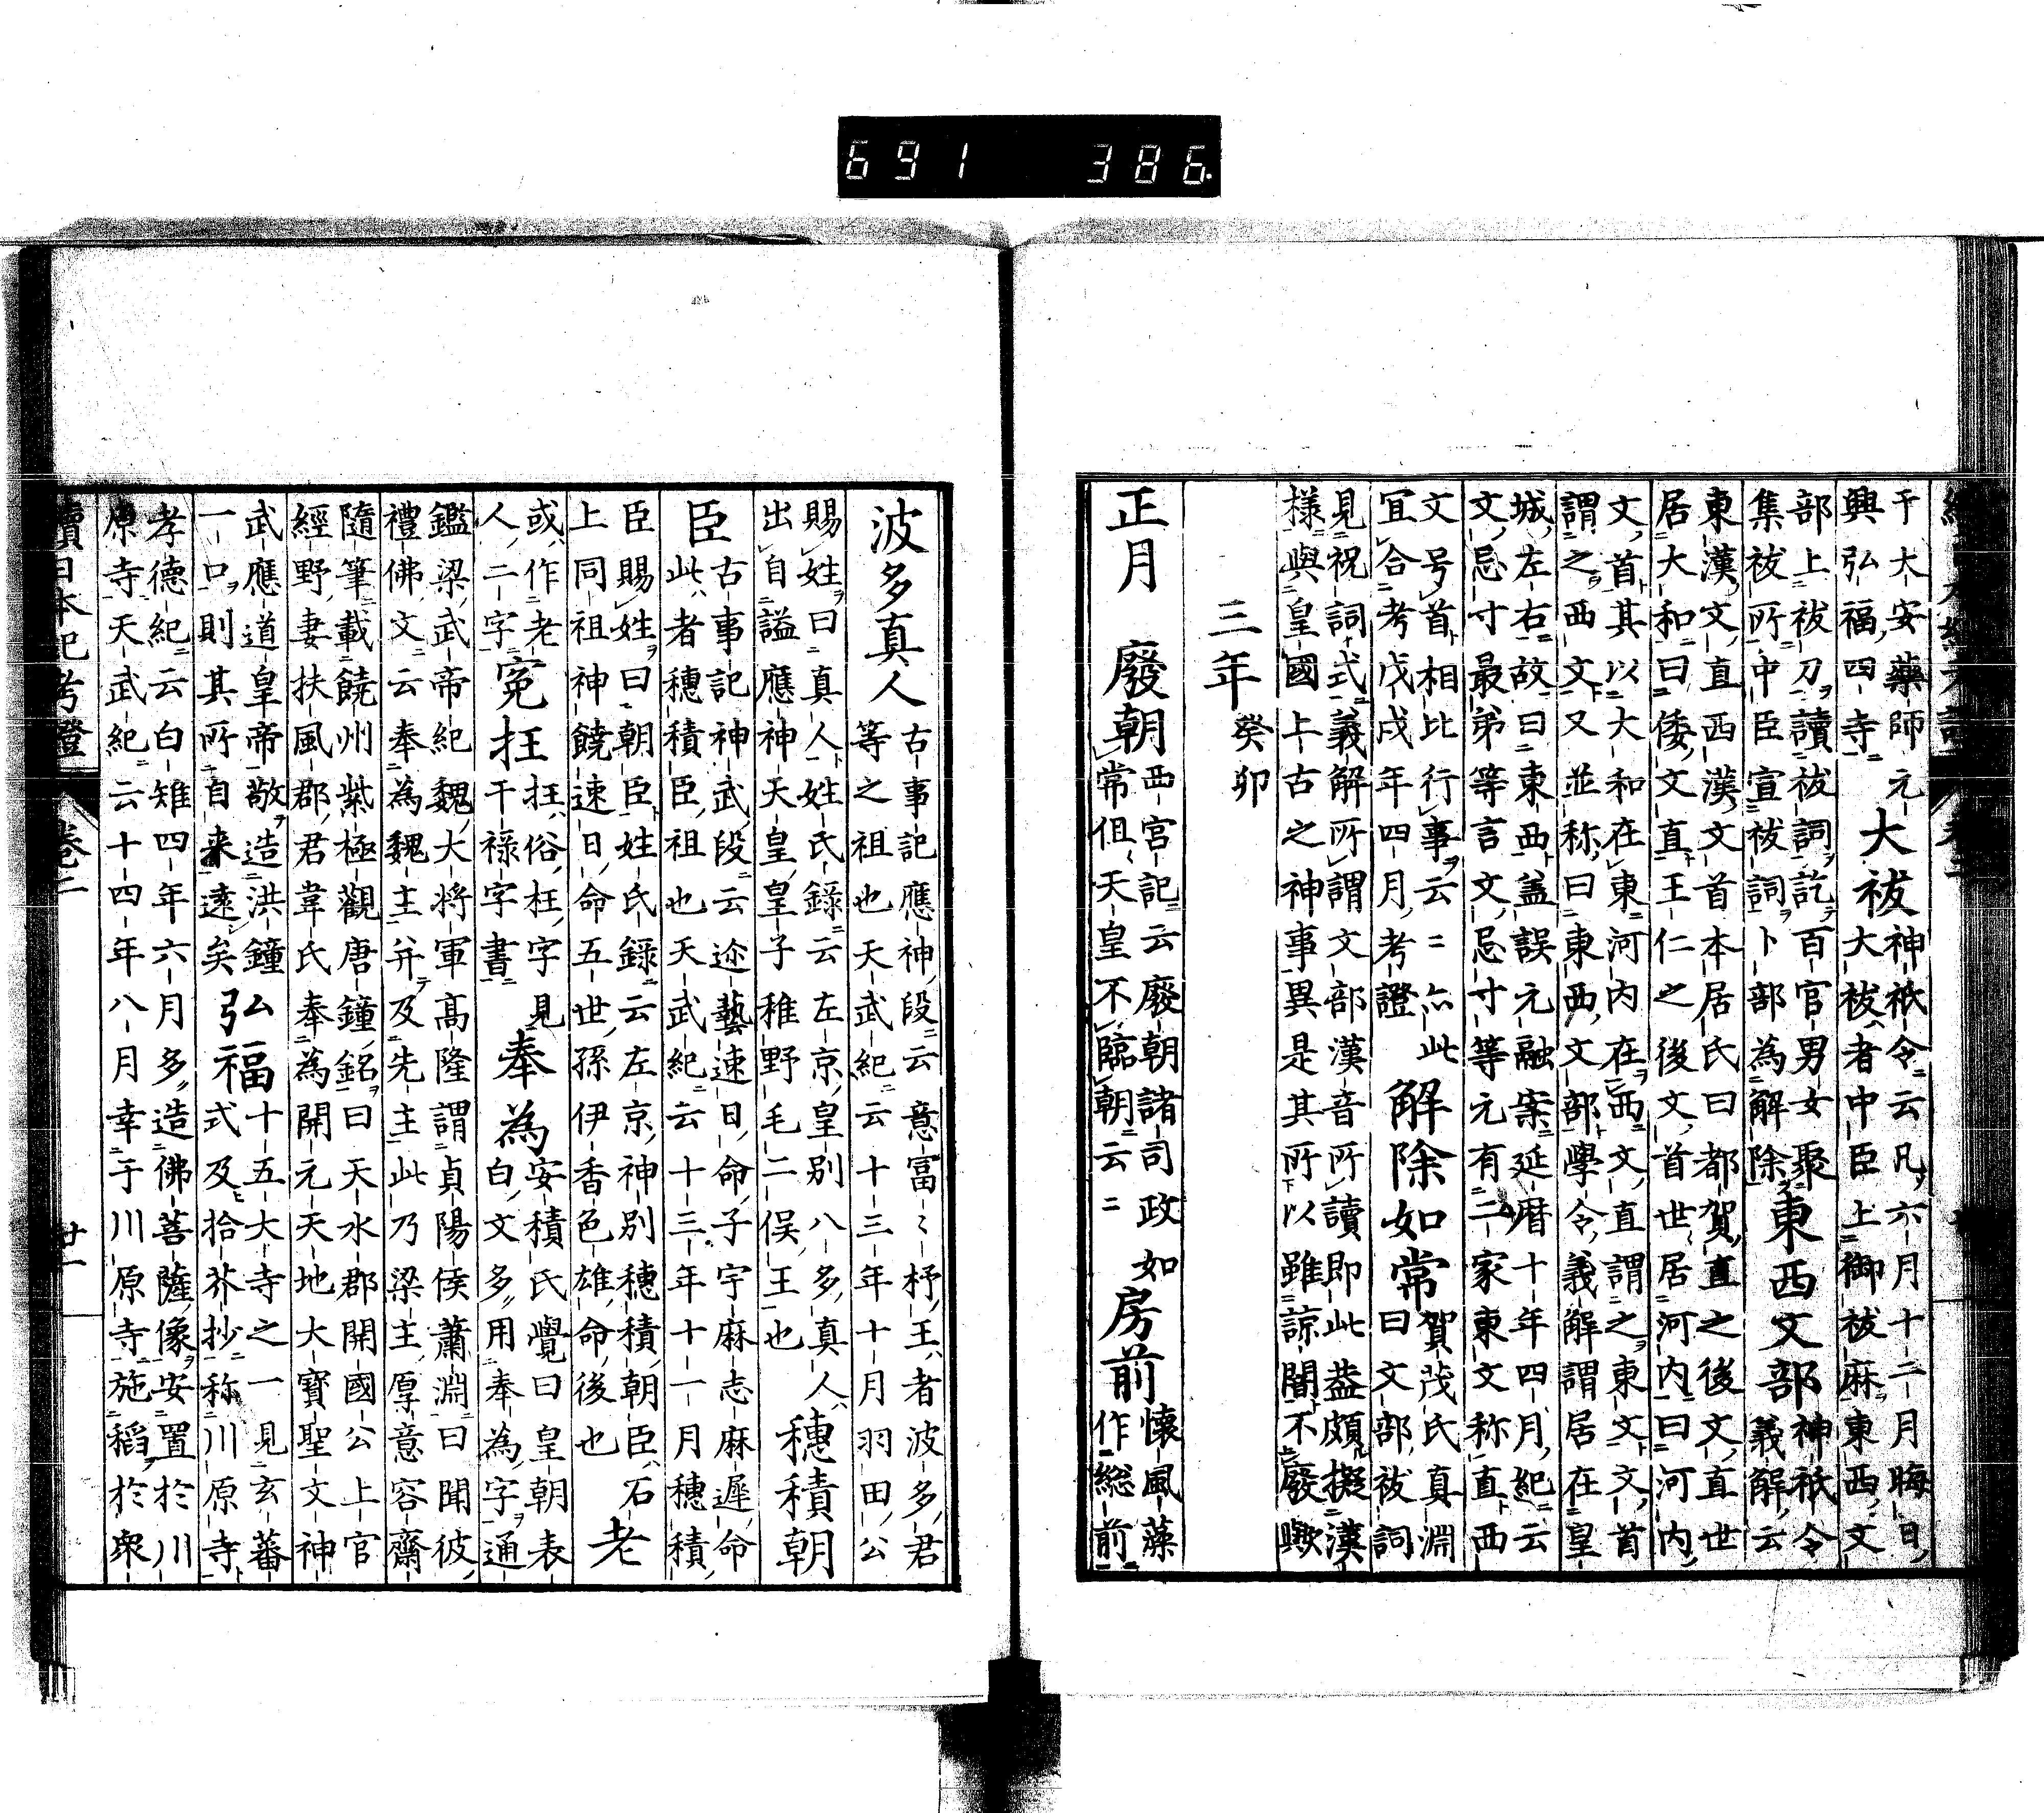 于大安藥師元
興弘福四寺
大祓
神祇令云凡六月十二月晦日
大祓者中臣上御祓麻東西文
部上祓刀讀祓詞訖百官男女聚
集祓所中臣宣祓詞卜部為解除
東西文部
神祇令
義解云
東漢文直西漢文首本居氏曰都賀直之後文直世
居大和曰倭文直王仁之後文首世居河内曰河内
文首其以大和在東河内在西文直謂之東文文首
謂之西文又並称曰東西文部學令義解謂居在皇
城左右故曰東西盖誤元融案延暦十年四月紀云
文忌寸最弟等言文忌寸等元有二家東文称直西
文号首相比行事云〻亦此
宜合考戊戌年四月考證
解除如常
賀茂氏真淵
曰文部祓詞
見祝詞式義解所謂文部漢音所讀即此盖頗擬漢
様與皇國上古之神事異是其所以雖諒闇不廢歟
三年癸卯
正月 廢朝
西宮記云廢朝諸司政如
常但天皇不臨朝云〻
房前
懷風藻
作総前
波多真人
古事記應神段云意富〻杼王者波多君
等之祖也天武紀云十三年十月羽田公
賜姓曰真人姓氏錄云左京皇別八多真人
出自謚應神天皇皇子稚野毛二俣王也
穗積朝
臣
古事記神武段云迩藝速日命子宇麻志麻遲命
此者穗積臣祖也天武紀云十三年十一月穗積
臣賜姓曰朝臣姓氏録云左京神別穗積朝臣石
上同祖神饒速日命五世孫伊香色雄命後也
老
或作老
人二字
寃抂
抂俗枉字見
干禄字書
奉為
安積氏覺曰皇朝表
白文多用奉為字通
鑑梁武帝紀魏大將軍髙隆謂貞陽侯蕭淵曰聞彼
禮佛文云奉為魏主并及先主此乃梁主厚意容齋
隨筆載饒州紫極觀唐鐘銘曰天水郡開國公上官
經野妻扶風郡君韋氏奉為開元天地大寶聖文神
武應道皇帝敬造洪鐘
一口則其所自来遠矣
弘福
十五大寺之一見玄蕃
式及拾芥抄称川原寺
孝德紀云白雉四年六月多造佛菩薩像安置於川
原寺天武紀云十四年八月幸于川原寺施稻於衆
續日本紀考證
卷二
廿一
691 386